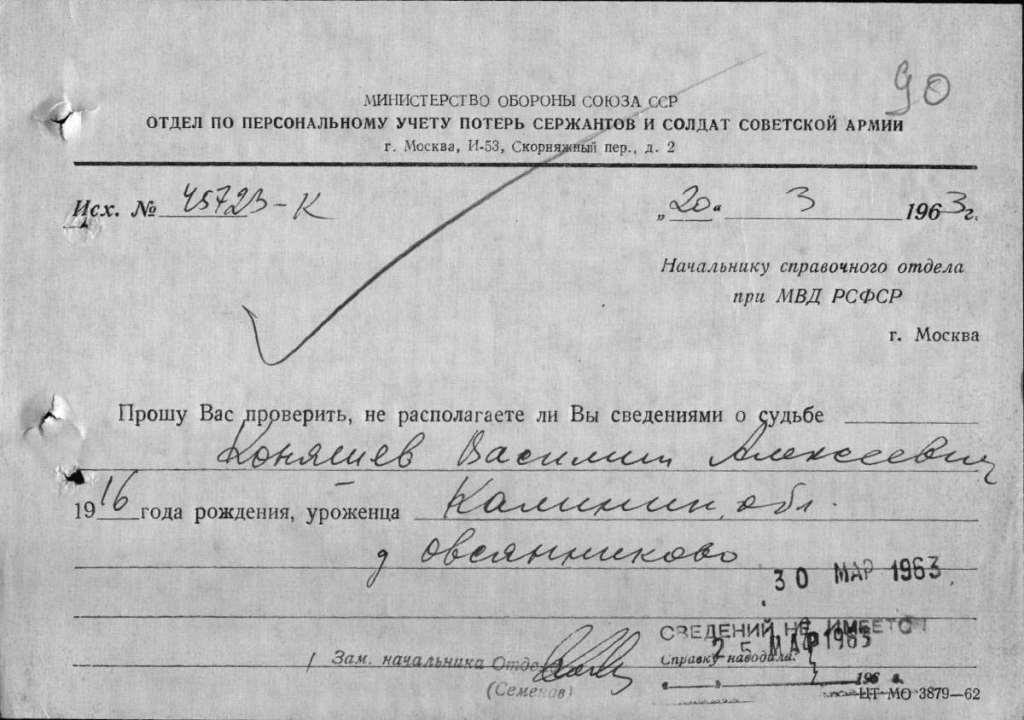 90
МИНИСТЕРСТВО ОБОРОНЫ СОЮЗА ССР
ОТДЕЛ ПО ПЕРСОНАЛЬНОМУ УЧЕТУ ПОТЕРЬ СЕРЖАНТОВ И СОЛДАТ СОВЕТСКОЙ АРМИИ
г. Москва, И-53, Скорняжный пер., д. 2
Исх. № 45723-К „20“ 3 1963 г.
Начальнику справочного отдела
при МВД РСФСР
г. Москва
Прошу Вас проверить, не располагаете ли Вы сведениями о судьбе
Коняшев Василий Алексеевич
1916 года рождения, уроженца Калинин. обл.
д Овсянниково
30 МАР 1963
СВЕДЕНИЙ НЕ ИМЕЕТСЯ
25 МАР 1963
Зам. начальника Отдела Справку наводила:
(Семенов) 196 г.
ЦТ МО 3879—62